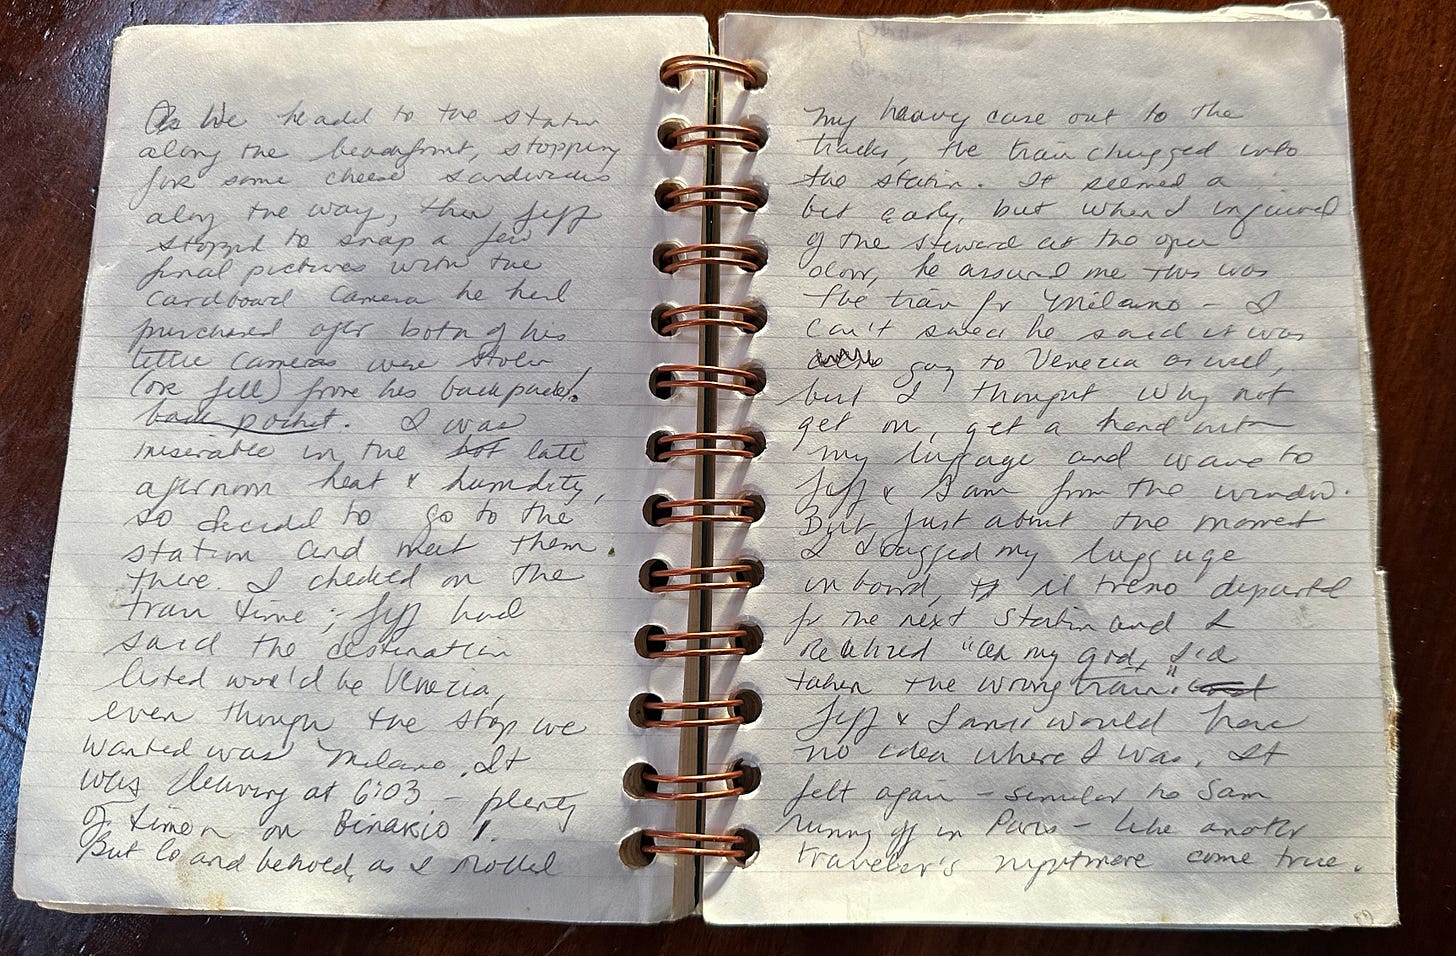 As we headed to the station
along the beachfront, stopping
for some cheese sandwiches
along the way, then Jeff
stopped to snap a few
final pictures with the
cardboard camera he had
purchased after both of his
little cameras were stolen
(or fell) from his backpack.
back pocket. I was
miserable in the hot late
afternoon heat & humidity,
so decided to go to the
station and meet them
there. I checked on the
train time; Jeff had
said the destination
listed would be Venezia,
even though the stop we
wanted was Milano. It
was leaving at 6:03 - plenty
of time on Binario 1.
But lo and behold, as I rolled
my heavy case out to the
tracks, the train chugged into
the station. It seemed a
bit early, but when I inquired
of the steward at the open
door, he assured me this was
the train for Milano - I
can't swear he said it was
going to Venezia as well,
but I thought why not
get on, get a hand with
my luggage and wave to
Jeff & Sam from the window.
But just about the moment
I dragged my luggage
on board, il treno departed
for the next station and I
realized "Oh my god, I'd
taken the wrong train".
Jeff & Sam would have
no idea where I was. It
felt again - similar to Sam
running off in Paris - like another
traveler's nightmare come true.